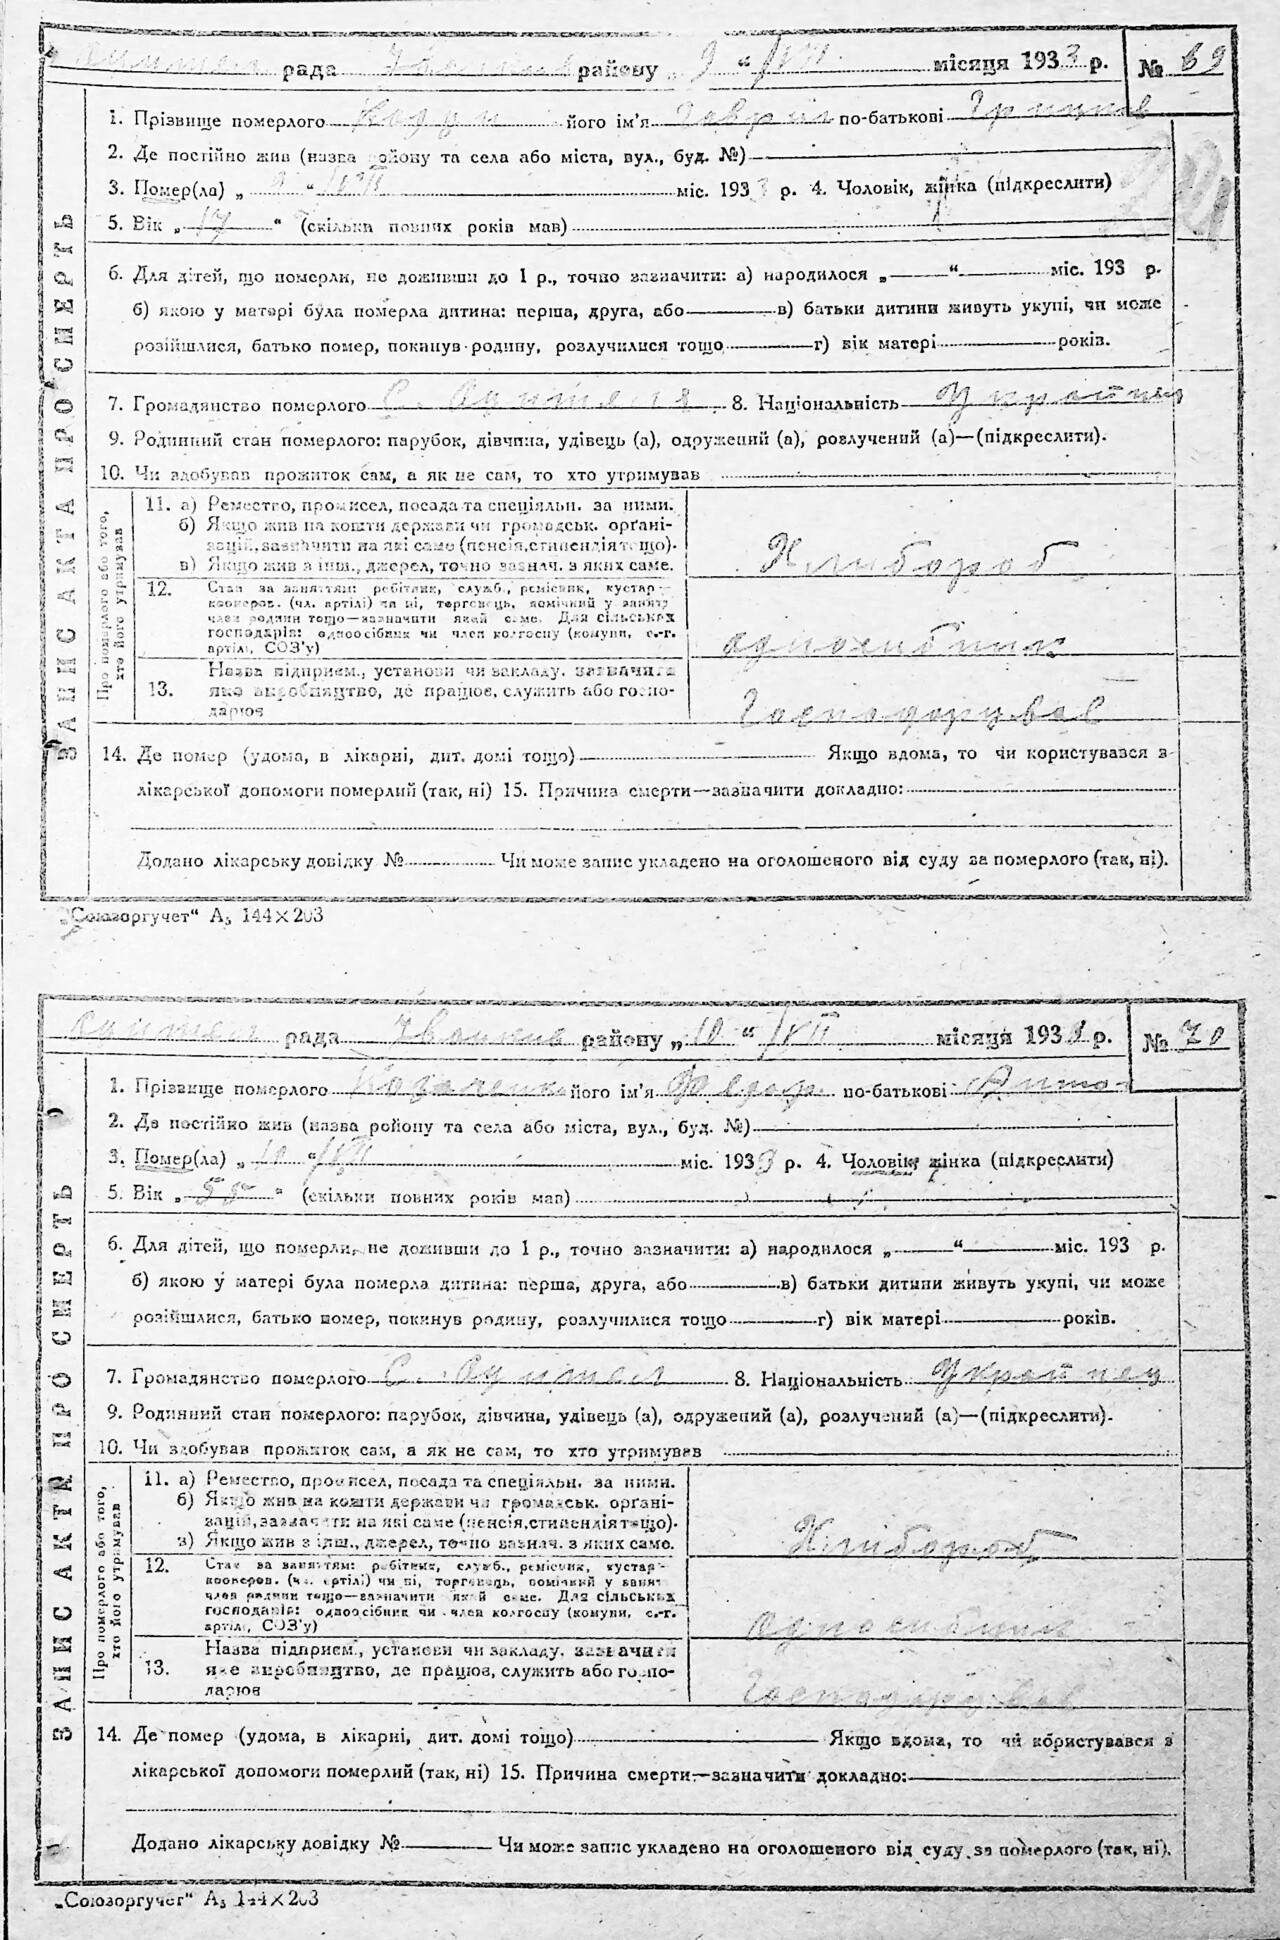 рада району „ 9 “ /VII місяця 1933 р. № 69
1. Прізвище померлого його ім'я Гаврил по-батькові
2. Де постійно жив (назва району та села або міста, вул., буд. №)
3. Помер(ла) „ 9 “ /VII міс. 1933 р. 4. Чоловік, жінка (підкреслити)
5. Вік „ 17 “ (скільки повних років мав)
6. Для дітей, що померли, не доживши до 1 р., точно зазначити: а) народилося „ “ міс. 193 р.
б) якою у матері була померла дитина: перша, друга, або в) батьки дитини живуть укупі, чи може
розійшлися, батько помер, покинув родину, розлучилися тощо г) вік матері років.
7. Громадянство померлого С. 8. Національність Украпнец
9. Родинний стан померлого: парубок, дівчина, удівець (а), одружений (а), розлучений (а)—(підкреслити).
10. Чи здобував прожиток сам, а як не сам, то хто утримував
ЗАПИС АКТА ПРО СМЕРТЬ
Про померлого або того, хто його утримував
11. а) Ремество, промисел, посада та спеціяльн. за ними.
б) Якщо жив на кошти держави чи громадськ. орґані-
зацій, зазначити на які саме (пенсія, стипендія тощо).
в) Якщо жив з інш., джерел, точно зазнач. з яких саме.
Хлибороб
12. Стан за заняттям: робітник, служб., ремісник, кустар-
кооперов. (чл. артілі) чи ні, торговець, помічний у занят.
член родини тощо—зазначити який саме. Для сільських
господарів: одноосібник чи член колгоспу (комуни, с.-г.
артілі, СОЗ'у)
односибник
13. Назва підприєм., установи чи закладу, зазначити
яке виробництво, де працює, служить або госпо-
дарює
Господорував
14. Де помер (удома, в лікарні, дит. домі тощо) Якщо вдома, то чи користувався з
лікарської допомоги померлий (так, ні) 15. Причина смерти—зазначити докладно:
Додано лікарську довідку № Чи може запис укладено на оголошеного від суду за померлого (так, ні).
„Союзоргучет“ А₅ 144×203
рада району „ 10 “ /VII місяця 1933 р. № 70
1. Прізвище померлого Козаченко його ім'я Федор по-батькові Антон
2. Де постійно жив (назва району та села або міста, вул., буд. №)
3. Помер(ла) „ 10 “ /VII міс. 1933 р. 4. Чоловік, жінка (підкреслити)
5. Вік „ 55 “ (скільки повних років мав)
6. Для дітей, що померли, не доживши до 1 р., точно зазначити: а) народилося „ “ міс. 193 р.
б) якою у матері була померла дитина: перша, друга, або в) батьки дитини живуть укупі, чи може
розійшлися, батько помер, покинув родину, розлучилися тощо г) вік матері років.
7. Громадянство померлого С. 8. Національність Украпнец
9. Родинний стан померлого: парубок, дівчина, удівець (а), одружений (а), розлучений (а)—(підкреслити).
10. Чи здобував прожиток сам, а як не сам, то хто утримував
ЗАПИС АКТА ПРО СМЕРТЬ
Про померлого або того, хто його утримував
11. а) Ремество, промисел, посада та спеціяльн. за ними.
б) Якщо жив на кошти держави чи громадськ. орґані-
зацій, зазначити на які саме (пенсія, стипендія тощо).
в) Якщо жив з інш., джерел, точно зазнач. з яких саме.
Хлибороб
12. Стан за заняттям: робітник, служб., ремісник, кустар-
кооперов. (чл. артілі) чи ні, торговець, помічний у занят.
член родини тощо—зазначити який саме. Для сільських
господарів: одноосібник чи член колгоспу (комуни, с.-г.
артілі, СОЗ'у)
односибник
13. Назва підприєм., установи чи закладу, зазначити
яке виробництво, де працює, служить або госпо-
дарює
Господорував
14. Де помер (удома, в лікарні, дит. домі тощо) Якщо вдома, то чи користувався з
лікарської допомоги померлий (так, ні) 15. Причина смерти—зазначити докладно:
Додано лікарську довідку № Чи може запис укладено на оголошеного від суду за померлого (так, ні).
„Союзоргучет“ А₅ 144×203